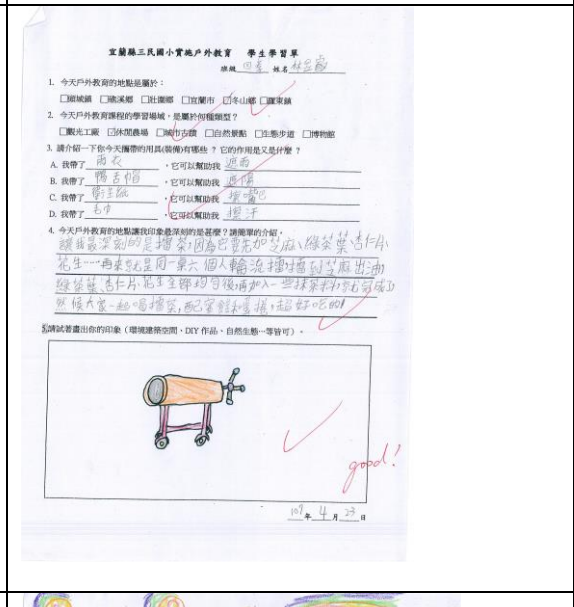 宜蘭縣三民國小實施戶外教育 學生學習單
班級 四孝 姓名 林
1. 今天戶外教育的地點是屬於：
□頭城鎮 □礁溪鄉 □壯圍鄉 □宜蘭市 ☑冬山鄉 □羅東鎮
2. 今天戶外教育課程的學習場域，是屬於何種類型？
□觀光工廠 ☑休閒農場 □城市古蹟 □自然景點 □生態步道 □博物館
3. 請介紹一下你今天攜帶的用具(裝備)有哪些？它的作用是又是什麼？
A. 我帶了 雨衣 ，它可以幫助我 遮雨
B. 我帶了 鴨舌帽 ，它可以幫助我 遮陽
C. 我帶了 衛生紙 ，它可以幫助我 擦嘴巴
D. 我帶了 毛巾 ，它可以幫助我 擦汗
4. 今天戶外教育的地點讓我印象最深刻的是甚麼？請簡單的介紹。
讓我最深刻的是擂茶，因為它要先加芝麻、綠茶葉、杏仁片、
花生……再來就是同一桌六個人輪流擂，擂到芝麻出油
綠茶葉、杏仁片、花生全部均勻後，再加入一些抹茶粉，就完成了
然候大家一起喝擂茶，配
超好吃的!
5.請試著畫出你的印象（環境建築空間、DIY 作品、自然生態…等皆可）。
good!
107年 4 月 23 日